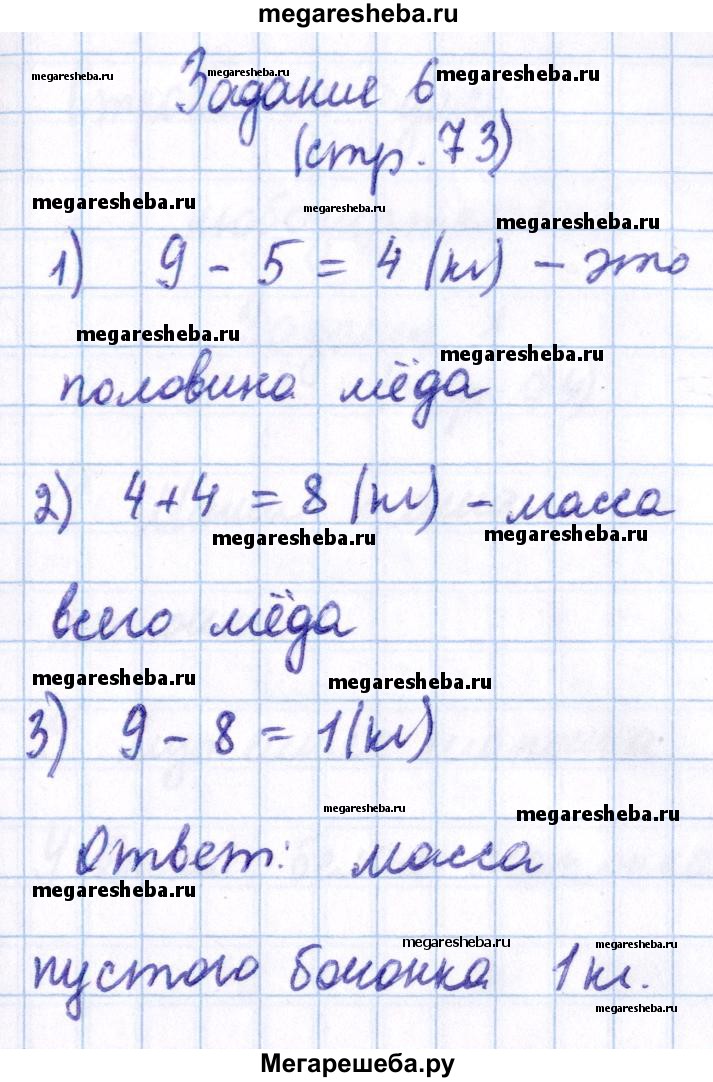 megaresheba.ru
megaresheba.ru megaresheba.ru megaresheba.ru
Задание 6
(стр. 73)
megaresheba.ru megaresheba.ru megaresheba.ru
1) 9 - 5 = 4 (кг) - это
megaresheba.ru megaresheba.ru
половина мёда
2) 4+4 = 8 (кг) - масса
megaresheba.ru megaresheba.ru
всего мёда
megaresheba.ru megaresheba.ru
3) 9 - 8 = 1 (кг)
megaresheba.ru megaresheba.ru
Ответ: масса
megaresheba.ru
megaresheba.ru megaresheba.ru
пустого бочонка 1 кг.
megaresheba.ru
Мегарешеба.ру